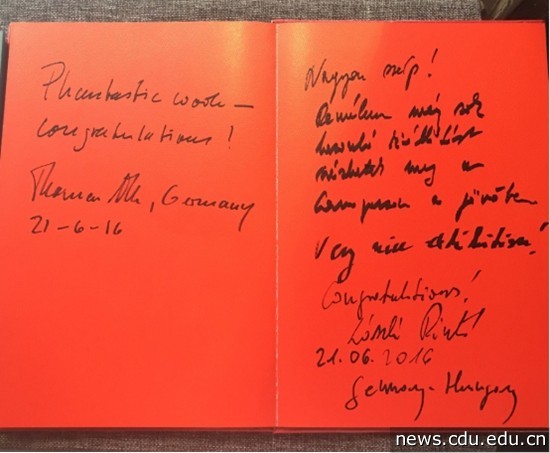 Phantastic work –
congratulations!
Thomas, Germany
21-6-16
Nagyon szép!
Remélem még sok
hasonló kiállítást
nézhetek meg a
a jövőben
Very nice exhibition!
Congratulations!
László
21.06.2016
Germany - Hungary
news.cdu.edu.cn